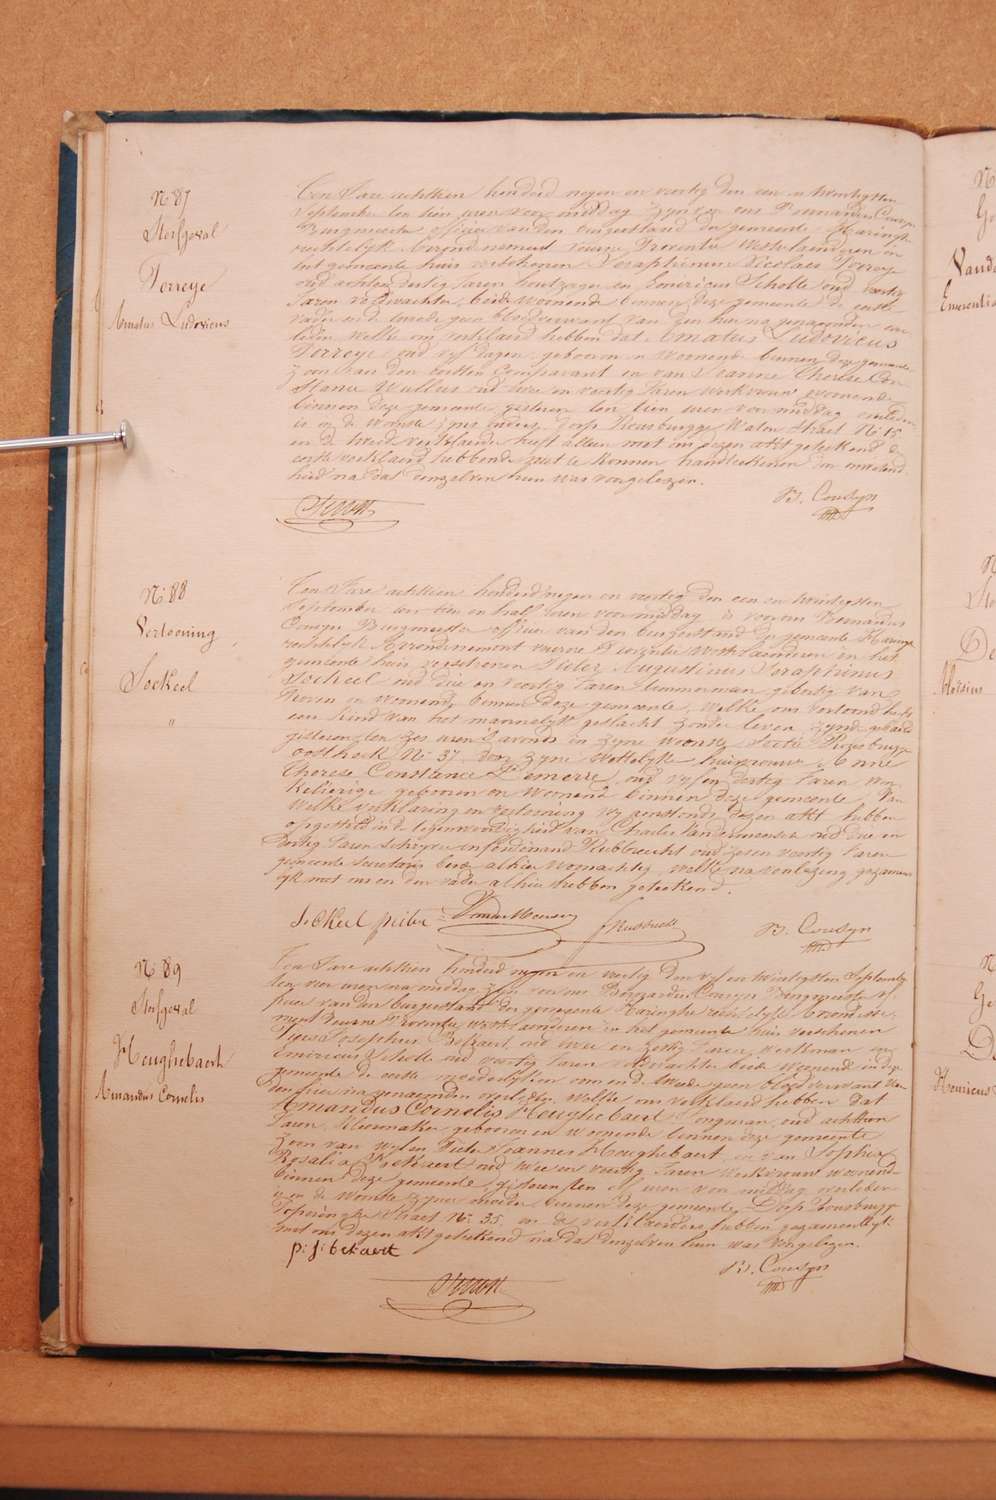 N° 87
Sterfgeval
Torreye
Amatus Ludovicus
Ten Jare achttien honderd negen en veertig den een en twintigsten
September ten tien uren voor middag zyn voor ons Bernardus Cousyn
Burgmeester officier van den burgerstand der gemeente Haringhe
rechterlyk Arrondissement Veurne Provintie Westvlaenderen in
het gemeente huis verschenen Seraphinus Nicolaus Torreye
oud achten dertig Jaren houtzager en Emericus Scholle oud veertig
Jaren veldwachter, beide woonende binnen deze gemeente de eerste
vader en de tweede geen bloedverwant van den hier na genoemden over
leden welke ons verklaerd hebben dat Amatus Ludovicus
Torreye oud vyf dagen geboren en woonende binnen deze gemeente
zoon van den eersten Comparant en van Jeanne Therese Con
stance Wullus oud twee en veertig Jaren werkvrouw woonende
binnen deze gemeente gisteren ten tien uren voor middag overleden
is in de wooste zyns vaders dorp Rousbrugge Waton straet N° 13
en de tweede verklaerder heeft alleen met ons dezen akt geteekend de
eerste verklaerd hebbende niet te konnen handteekenen van onwetend
heid na dat denzelven hun was voorgelezen.
B. Cousyn
N° 88
Vertooning
Sockeel
"
Ten Jare achttien honderd negen en veertig den een en twintigsten
September ten tien en half uren voor middag is voor ons Bernardus
Cousyn Burgmeester officier van den burgerstand der gemeente Haringe
rechterlyk Arrondissement veurne Provintie West vlaenderen in het
gemeente huis verschenen Pieter Augustinus Seraphinus
Sockeel oud drie en veertig Jaren timmerman geboortig van
Proven en woonende binnen deze gemeente, welke ons vertoond heeft
een kind van het mannelyk geslacht zonder leven zynde gebaerd
gisteren ten zes uren s'avonds in zyne wooste sectie Rousbrugge
oosthoek N° 37 door zyne wettelyke huisvrouw Anne
Therese Constance Demerre oud vyf en dertig Jaren win
kelierige geboren en woonend binnen deze gemeente. Van
welke verklaring en vertooning wy aenstonds dezen akt hebben
opgesteld in de tegenwoordigheid van Charles Vandermeersch oud drie en
dertig Jaren schryver en Ferdinand Rubbrecht oud zesen veertig Jaren
gemeente secretaris beide alhier woonachtig, welke na voorlezing gezamen
lyk met ons en den vader alhier hebben geteekend.
Sockeel pieter VanderMeersch F Rubbrecht B. Cousyn
N° 89
Sterfgeval
Heughebaert
Amandus Cornelis
Ten Jare achttien honderd negen en veertig den vyf en twintigsten September
ten vier uren na middag zyn voor ons Bernardus Cousyn Burgmeester of
ficier van den burgerstand der gemeente Haringhe rechterlyk Arrondisse
ment Veurne Provintie westvlaenderen in het gemeente huis verschenen
Pierre Josephus Bekaert oud twee en zestig Jaren werkman en
Emericus Scholle oud veertig Jaren veldwachter beide woonend in deze
gemeente de eerste moederlyken oom en de tweede geen bloedverwant van
den hier na genoemden overleden. Welke ons verklaerd hebben dat
Amandus Cornelis Heughebaert Jongman oud achttien
Jaren Kleermaker geboren en woonende binnen deze gemeente
zoon van wylen Pieter Joannes Heughebaert en van Sophie
Rosalia Bekaert oud twee en veertig Jaren werkvrouw woonende
binnen deze gemeente, gisteren ten elf uren voor middag overleden
is in de wooste zyner moeder binnen deze gemeente, Dorp Rousbrugge
Poperinghe straet N° 35. en de verklaerders hebben gezamentlyk
met ons dezen akt geteekend na dat denzelven hun was voorgelezen.
p: j: bekaert
B. Cousyn